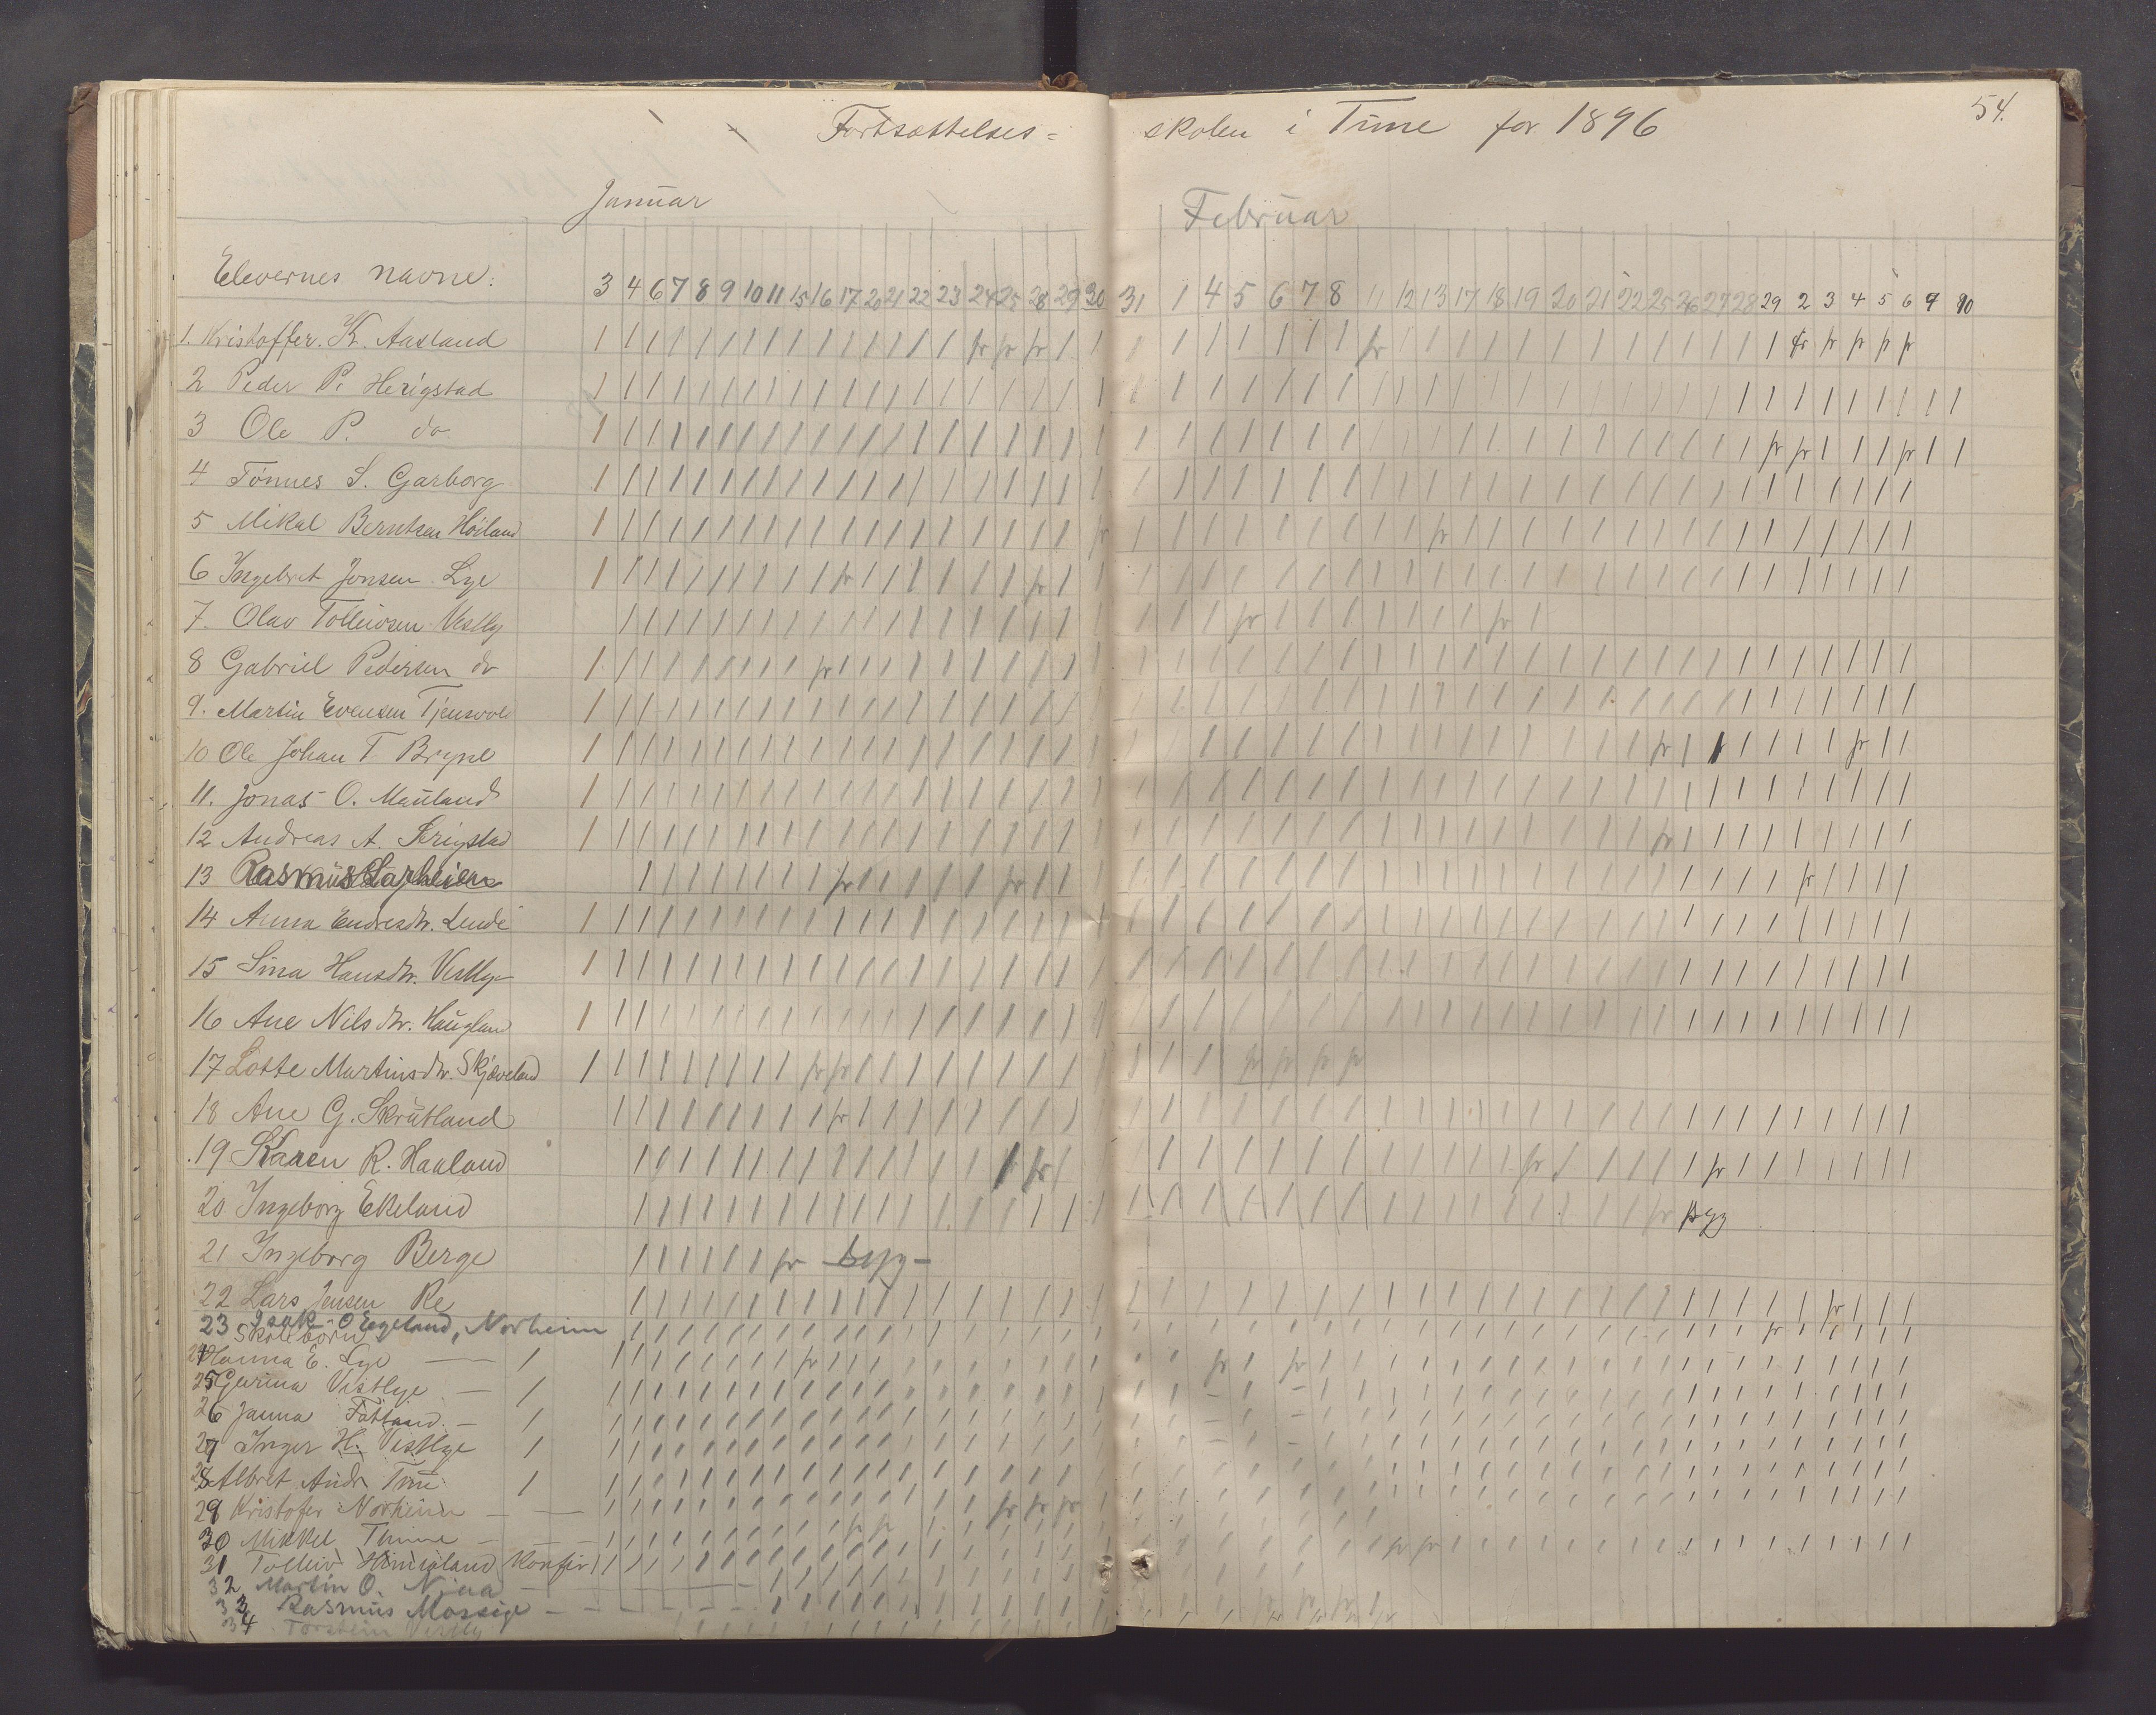 Fortsættelses= skolen i Time for 1896
54.
Januar
Februar
Elevernes navne:
3 4 6 7 8 9 10 11 15 16 17 20 21 22 23 24 25 28 29 30 31 1 4 5 6 7 8 11 12 13 17 18 19 20 21 22 25 26 27 28 29 2 3 4 5 6 9 10
1. Kristoffer K. Aasland
2 Peder P. Herigstad
3 Ole P. do
4 Tönnes S. Garborg
5 Mikal Berntsen Höiland
6 Ingebret Jonsen Lye
7. Olav Tolleivsen Vestly
8 Gabriel Pedersen do
9. Martin Evensen Tjensvold
10 Ole Johan T Bryne
11. Jonas O. Mauland
12 Andreas A.
13 Rasmus
14 Anna Endresdtr. Lende
15 Sina Hansdtr. Vestlye
16 Ane Nilsdtr. Haugland
17 Lotte Martinsdtr. Skjæveland
18 Ane G. Skrutland
19 Karen R. Haaland
20 Ingeborg Ekeland syg
21 Ingeborg Berge fr syg
22 Lars Jensen Re
23 Isak O Eegeland, Norheim
Skolebörn
24 Hanna E. Lye
25 Gurina Vestlye
26 Janna
27 Inger H. Vestlye
28 Albret Andr Time
29 Kristofer Norheim
30 Mikkel Thime
31 Tolleiv Konfir
32 Martin O.
33 Rasmus Mossige
34 Torstein Vestly